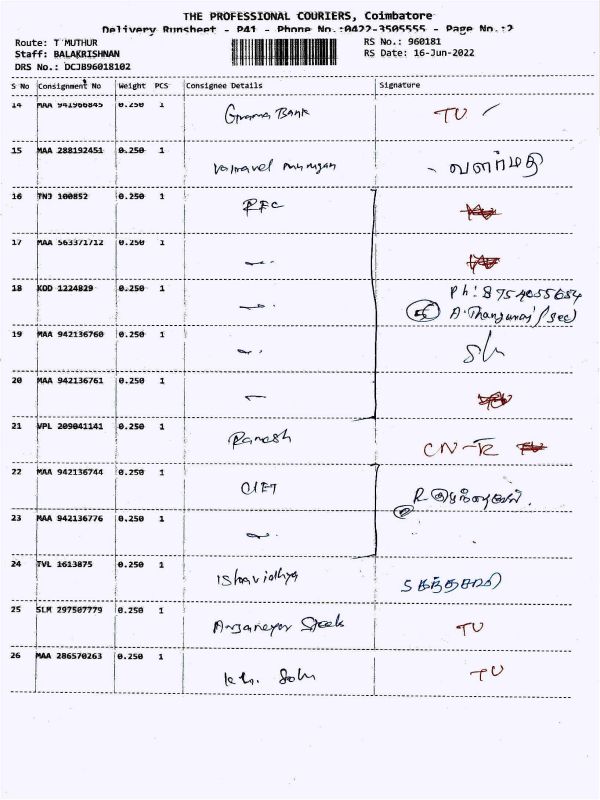 THE PROFESSIONAL COURIERS, Coimbatore
Delivery Runsheet - P41 - Phone No.:0422-3505555 - Page No.:2
Route: T MUTHUR
RS No.: 960181
Staff: BALAKRISHNAN
RS Date: 16-Jun-2022
DRS No.: DCJB96018102
S No Consignment No Weight PCS Consignee Details Signature
14 MAA 941966845 0.250 1 Grama Bank TU
15 MAA 288192451 0.250 1 வளர்மதி
16 TNJ 100852 0.250 1 RFC
17 MAA 563371712 0.250 1
18 KOD 1224829 0.250 1 Ph: 8754055684
A. Thangaraj (Sec)
19 MAA 942136760 0.250 1
20 MAA 942136761 0.250 1
21 VPL 209041141 0.250 1 Ramesh CN-TR
22 MAA 942136744 0.250 1 CIET R
23 MAA 942136776 0.250 1
24 TVL 1613875 0.250 1 Ishavidhya S கந்தசாமி
25 SLM 297507779 0.250 1 Anjaneyar Steels TU
26 MAA 286570263 0.250 1 TU